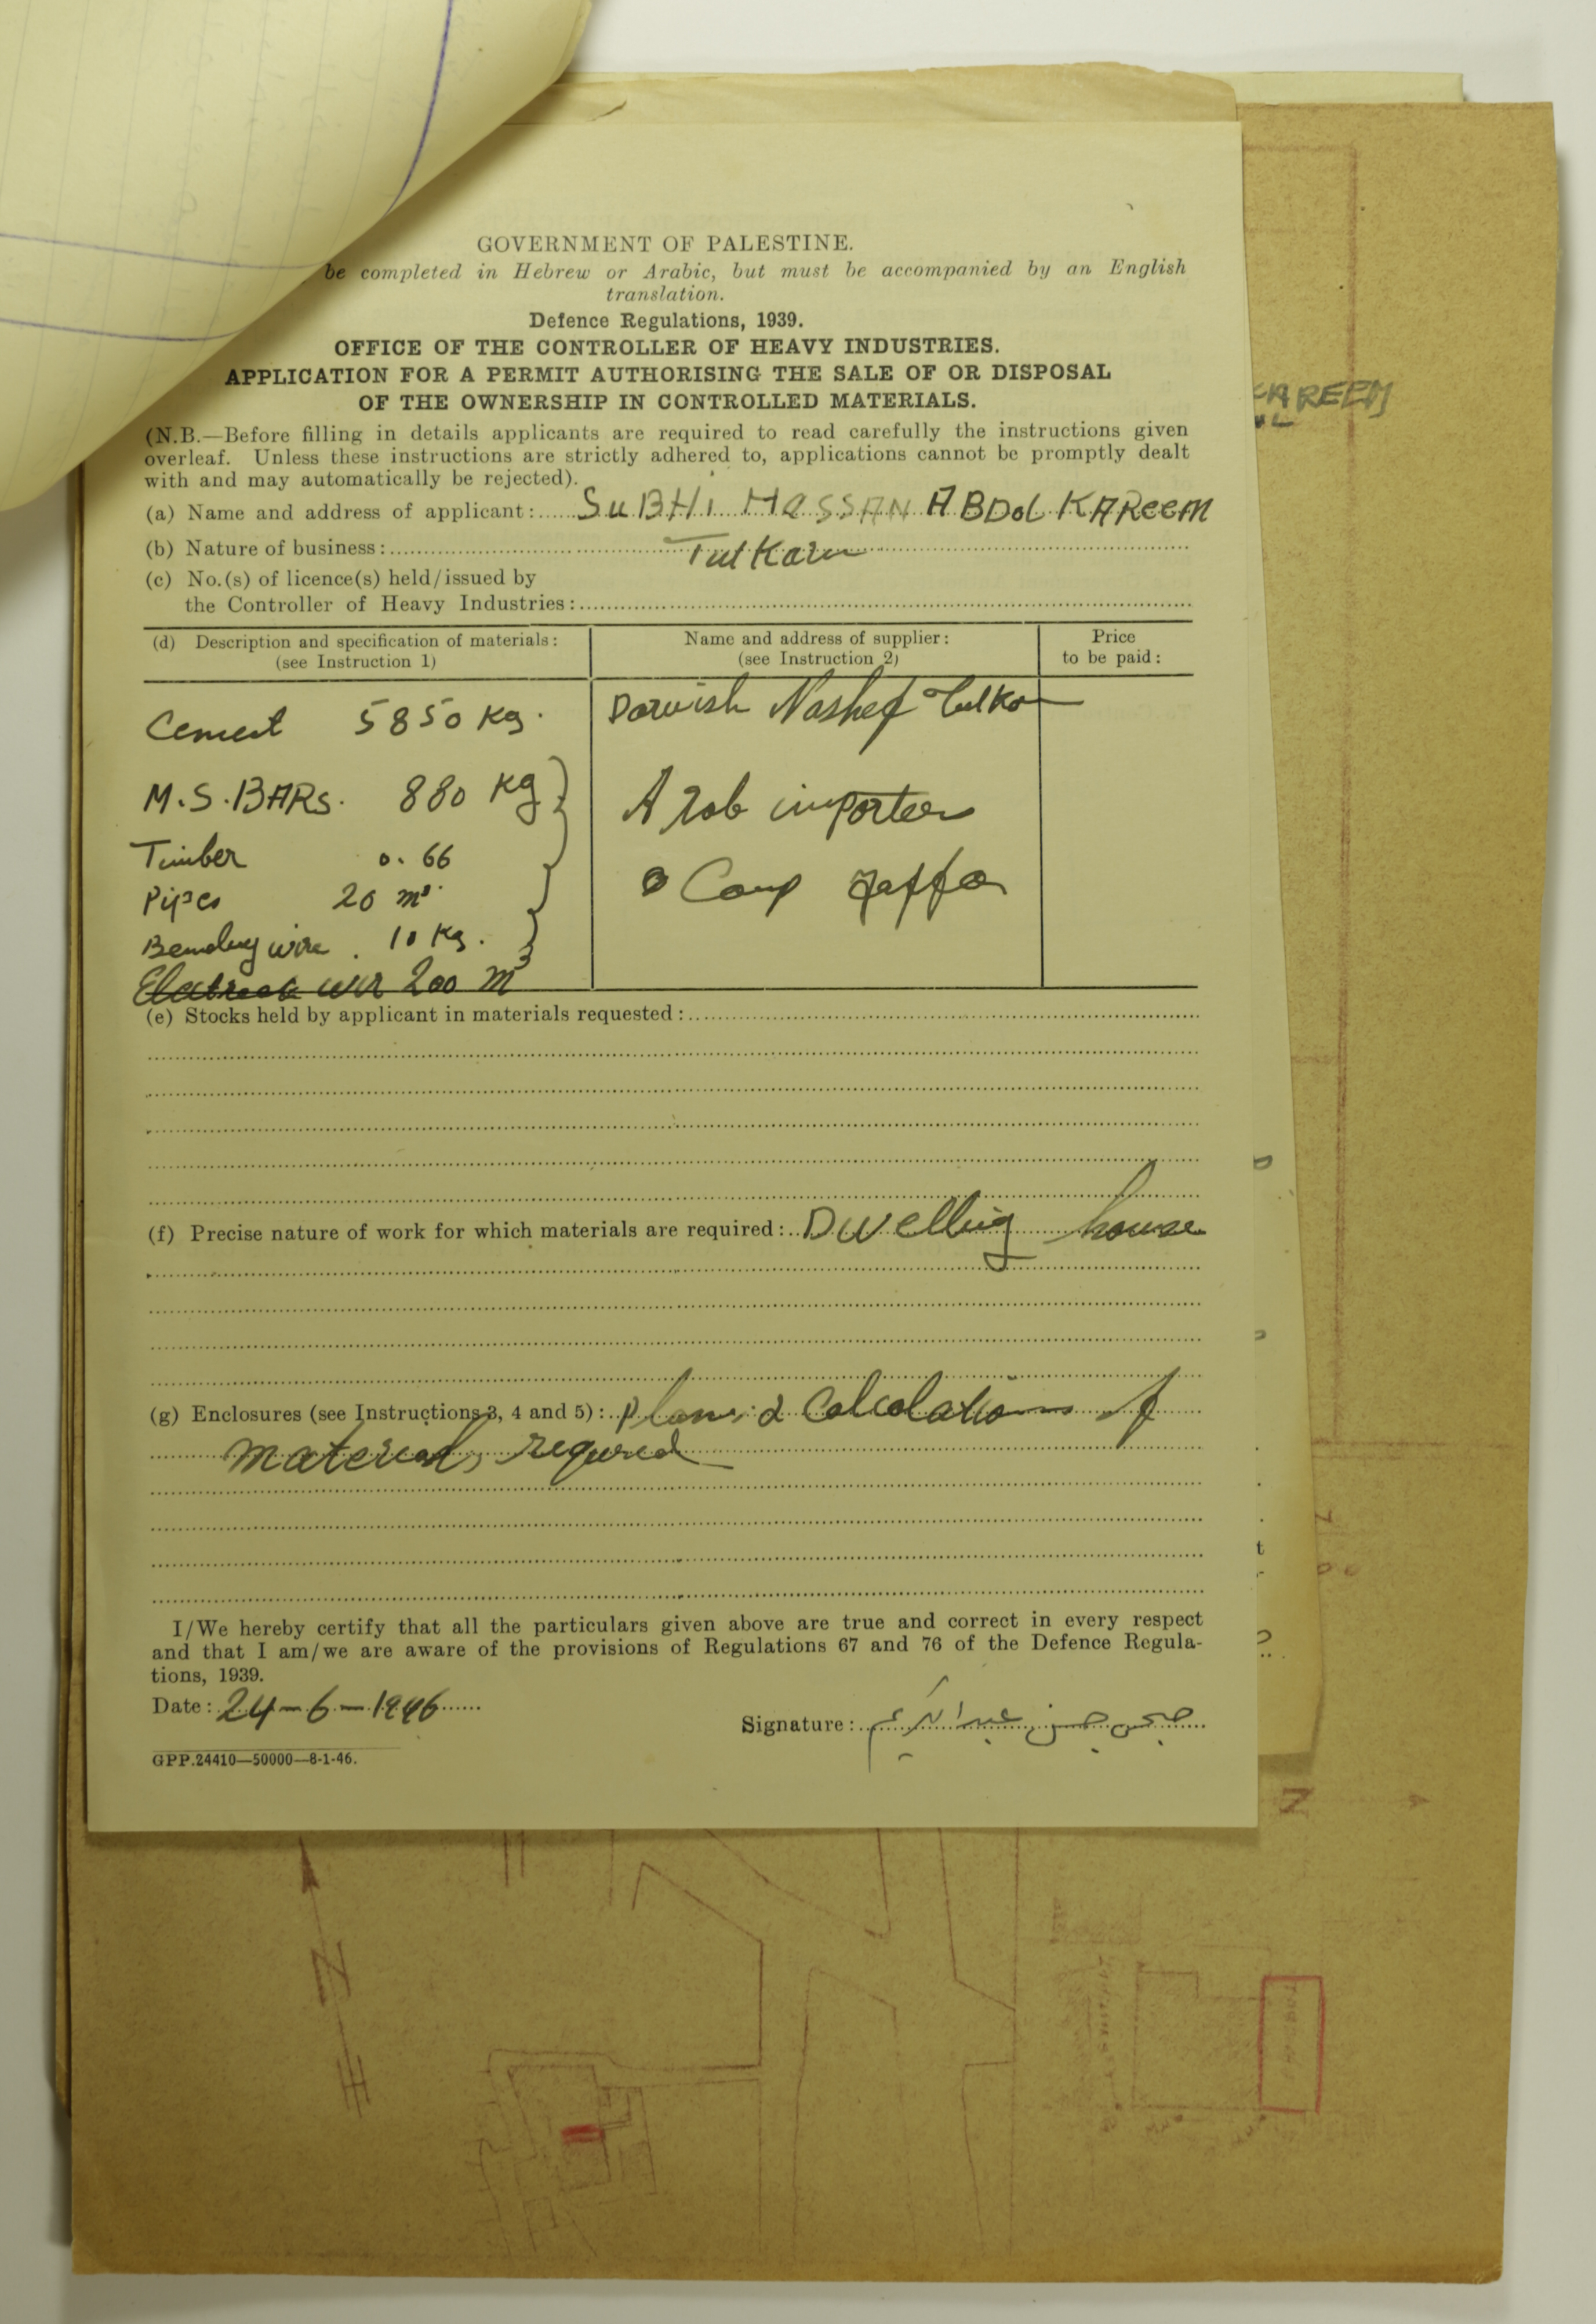 GOVERNMENT OF PALESTINE.
be completed in Hebrew or Arabic, but must be accompanied by an English
translation.
Defence Regulations, 1939.
OFFICE OF THE CONTROLLER OF HEAVY INDUSTRIES.
APPLICATION FOR A PERMIT AUTHORISING THE SALE OF OR DISPOSAL
OF THE OWNERSHIP IN CONTROLLED MATERIALS.
(N.B.—Before filling in details applicants are required to read carefully the instructions given
overleaf. Unless these instructions are strictly adhered to, applications cannot be promptly dealt
with and may automatically be rejected).
(a) Name and address of applicant: SUBHI HASSAN ABDOL KAReem
(b) Nature of business: Tulkarm
(c) No.(s) of licence(s) held/issued by
the Controller of Heavy Industries:
(d) Description and specification of materials:
(see Instruction 1)
Name and address of supplier:
(see Instruction 2)
Price
to be paid:
Cement 5850 Kg.
Darwish Nashef Tulka
M.S. BARs. 880 Kg
Arab importers
Timber 0.66
Comp Jaffa
Pipes 20 m³
Bending wire. 10 Kg.
200 m
(e) Stocks held by applicant in materials requested:
(f) Precise nature of work for which materials are required: Dwelling house
(g) Enclosures (see Instructions 3, 4 and 5): plans & Calcolations of
materials required
I/We hereby certify that all the particulars given above are true and correct in every respect
and that I am/we are aware of the provisions of Regulations 67 and 76 of the Defence Regula-
tions, 1939.
Date: 24-6-1946
Signature: صبحي حسن عبد الكريم
GPP.24410—50000—8-1-46.
KAREEM
N
N